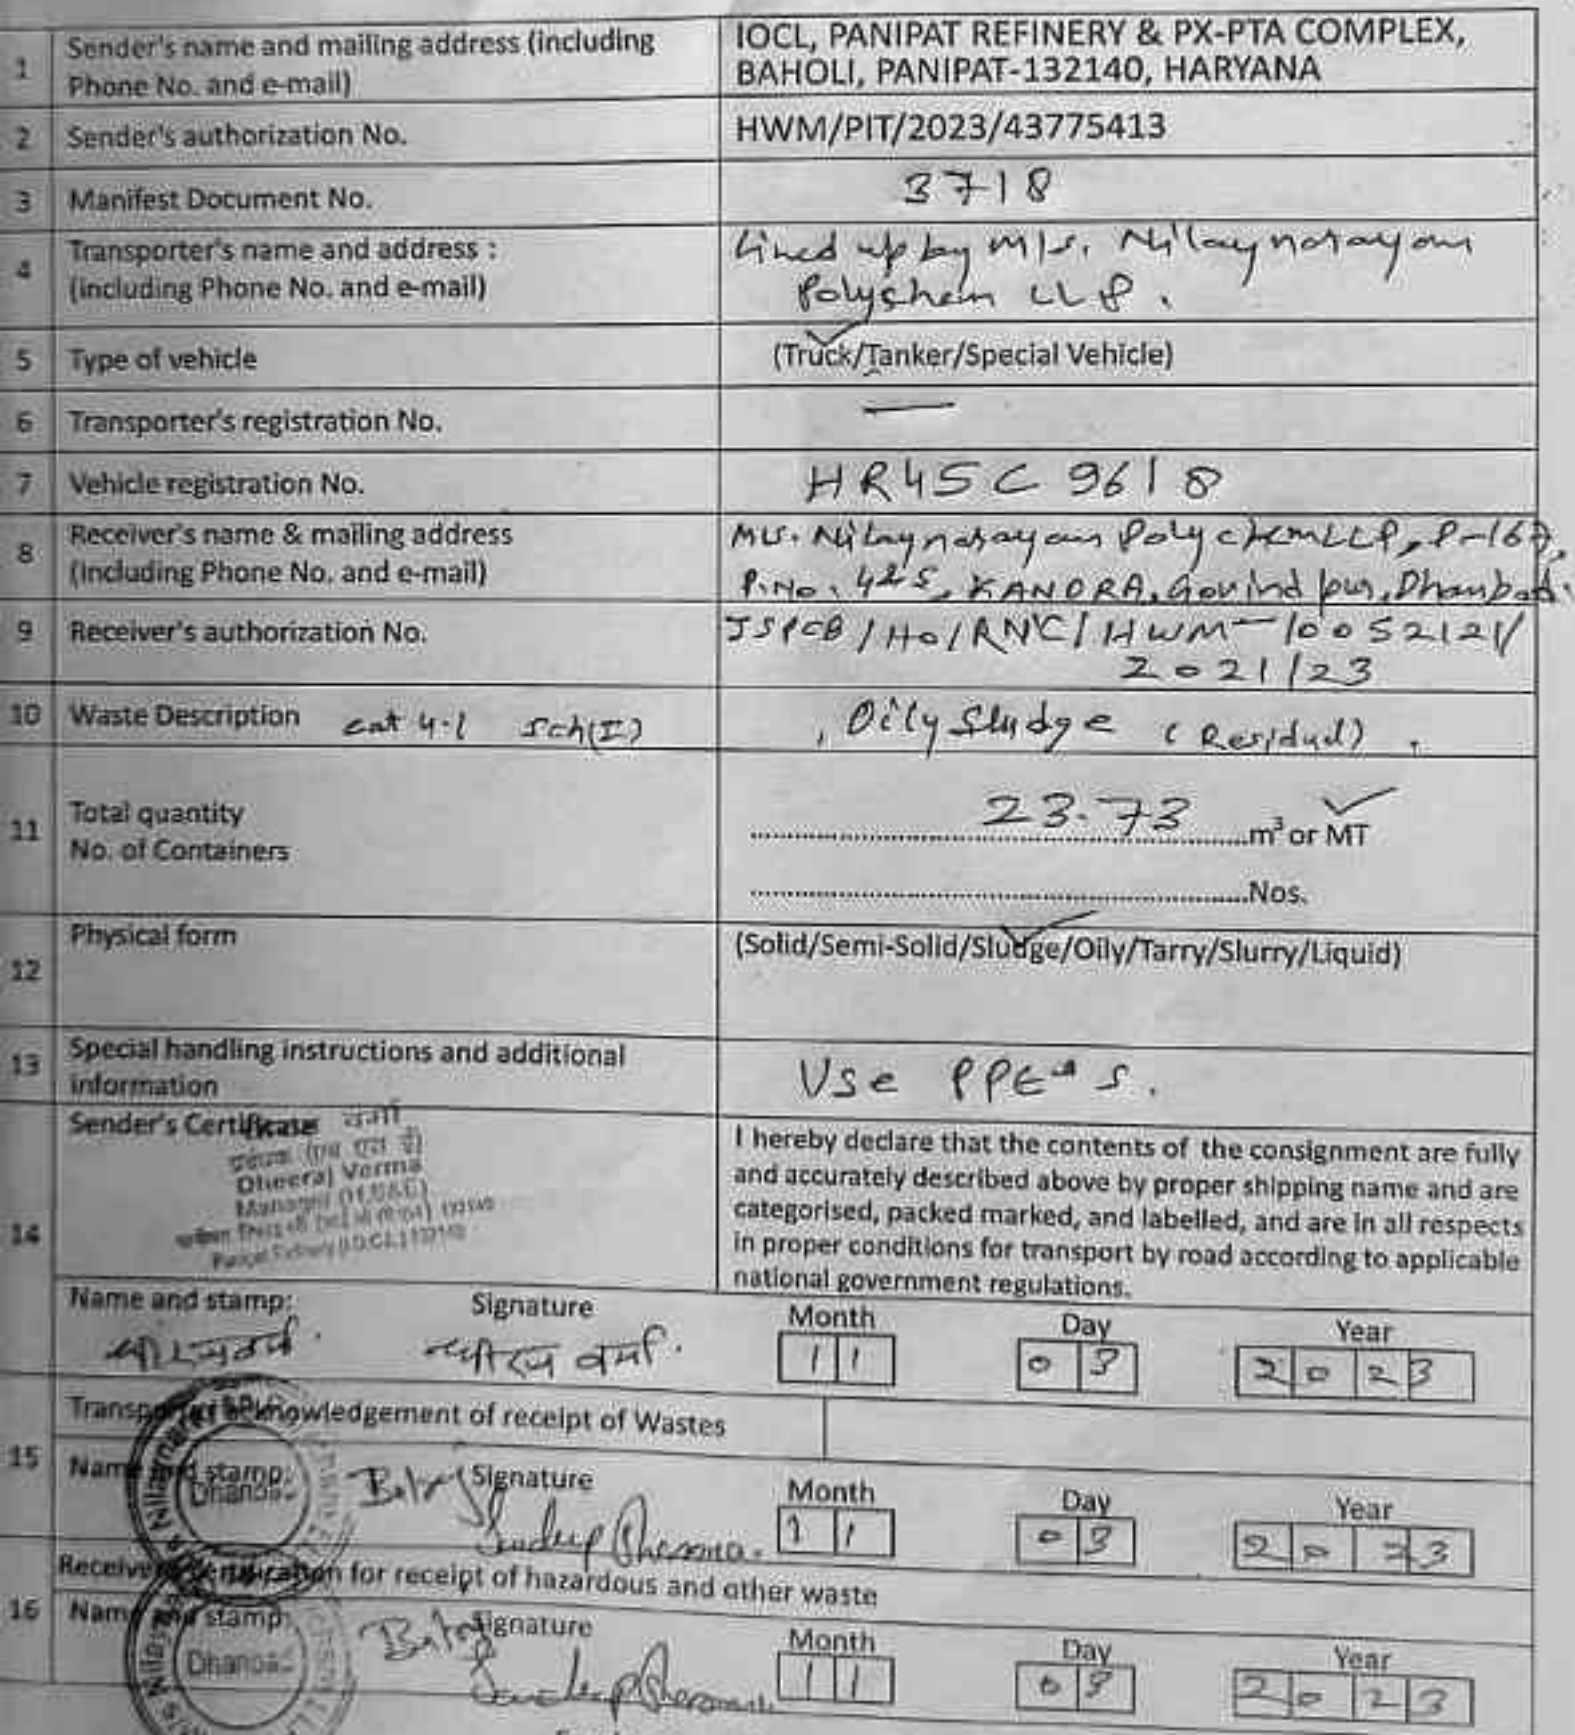 1 Sender's name and mailing address (including Phone No. and e-mail)
IOCL, PANIPAT REFINERY & PX-PTA COMPLEX,
BAHOLI, PANIPAT-132140, HARYANA
2 Sender's authorization No.
HWM/PIT/2023/43775413
3 Manifest Document No.
3718
4 Transporter's name and address :
(including Phone No. and e-mail)
Lined up by M/s. Nilaynarayan
Polychem LLP.
5 Type of vehicle
(Truck/Tanker/Special Vehicle)
6 Transporter's registration No.
—
7 Vehicle registration No.
HR45C 9618
8 Receiver's name & mailing address
(Including Phone No. and e-mail)
M/s. Nilaynarayan Polychem LLP,
P.No. 425, KANDRA, Govindpur, Dhanbad.
9 Receiver's authorization No.
JSPCB/HO/RNC/HWM-
2021/23
10 Waste Description cat 4.1 Sch(I)
Oily Sludge (Residual)
11 Total quantity
No. of Containers
23.73 m³ or MT
Nos.
12 Physical form
(Solid/Semi-Solid/Sludge/Oily/Tarry/Slurry/Liquid)
13 Special handling instructions and additional
information
Use PPE's.
14 Sender's Certificate
वर्मा
Dheeraj Verma
I hereby declare that the contents of the consignment are fully
and accurately described above by proper shipping name and are
categorised, packed marked, and labelled, and are in all respects
in proper conditions for transport by road according to applicable
national government regulations.
Name and stamp: Signature Month Day Year
धीरज वर्मा. धीरज वर्मा. 11 03 2023
15 Transporter's acknowledgement of receipt of Wastes
Name and stamp: Signature Month Day Year
Dhanbad Sandeep Sharma. 11 03 2023
16 Receiver's certification for receipt of hazardous and other waste
Name and stamp: Signature Month Day Year
Dhanbad Sandeep Sharma 11 03 2023